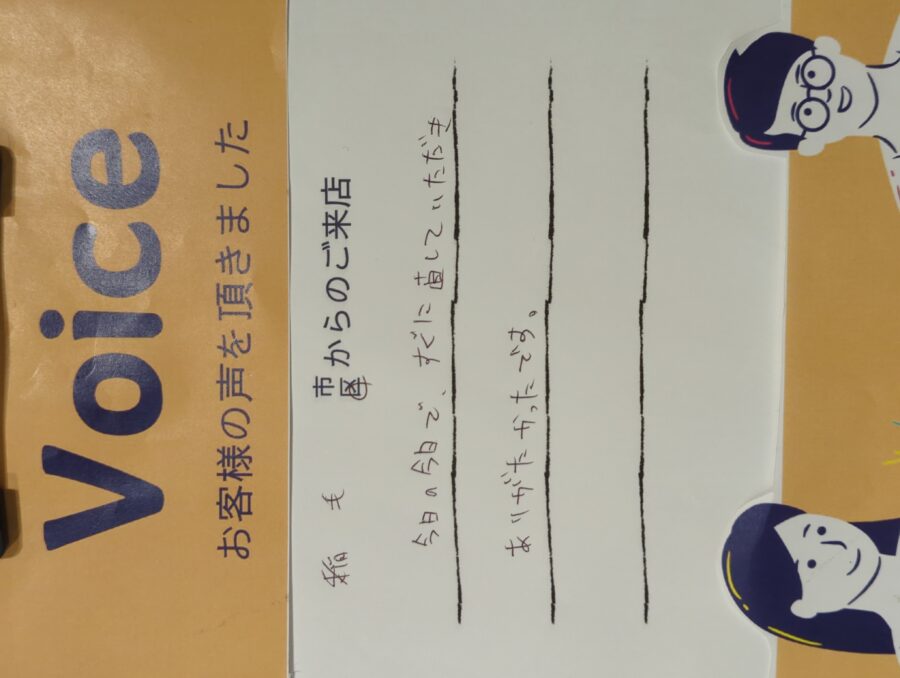 Voice
お客様の声を頂きました
稲毛 市区からのご来店
今日の今日で、すぐに直していただき
ありがたかったです。